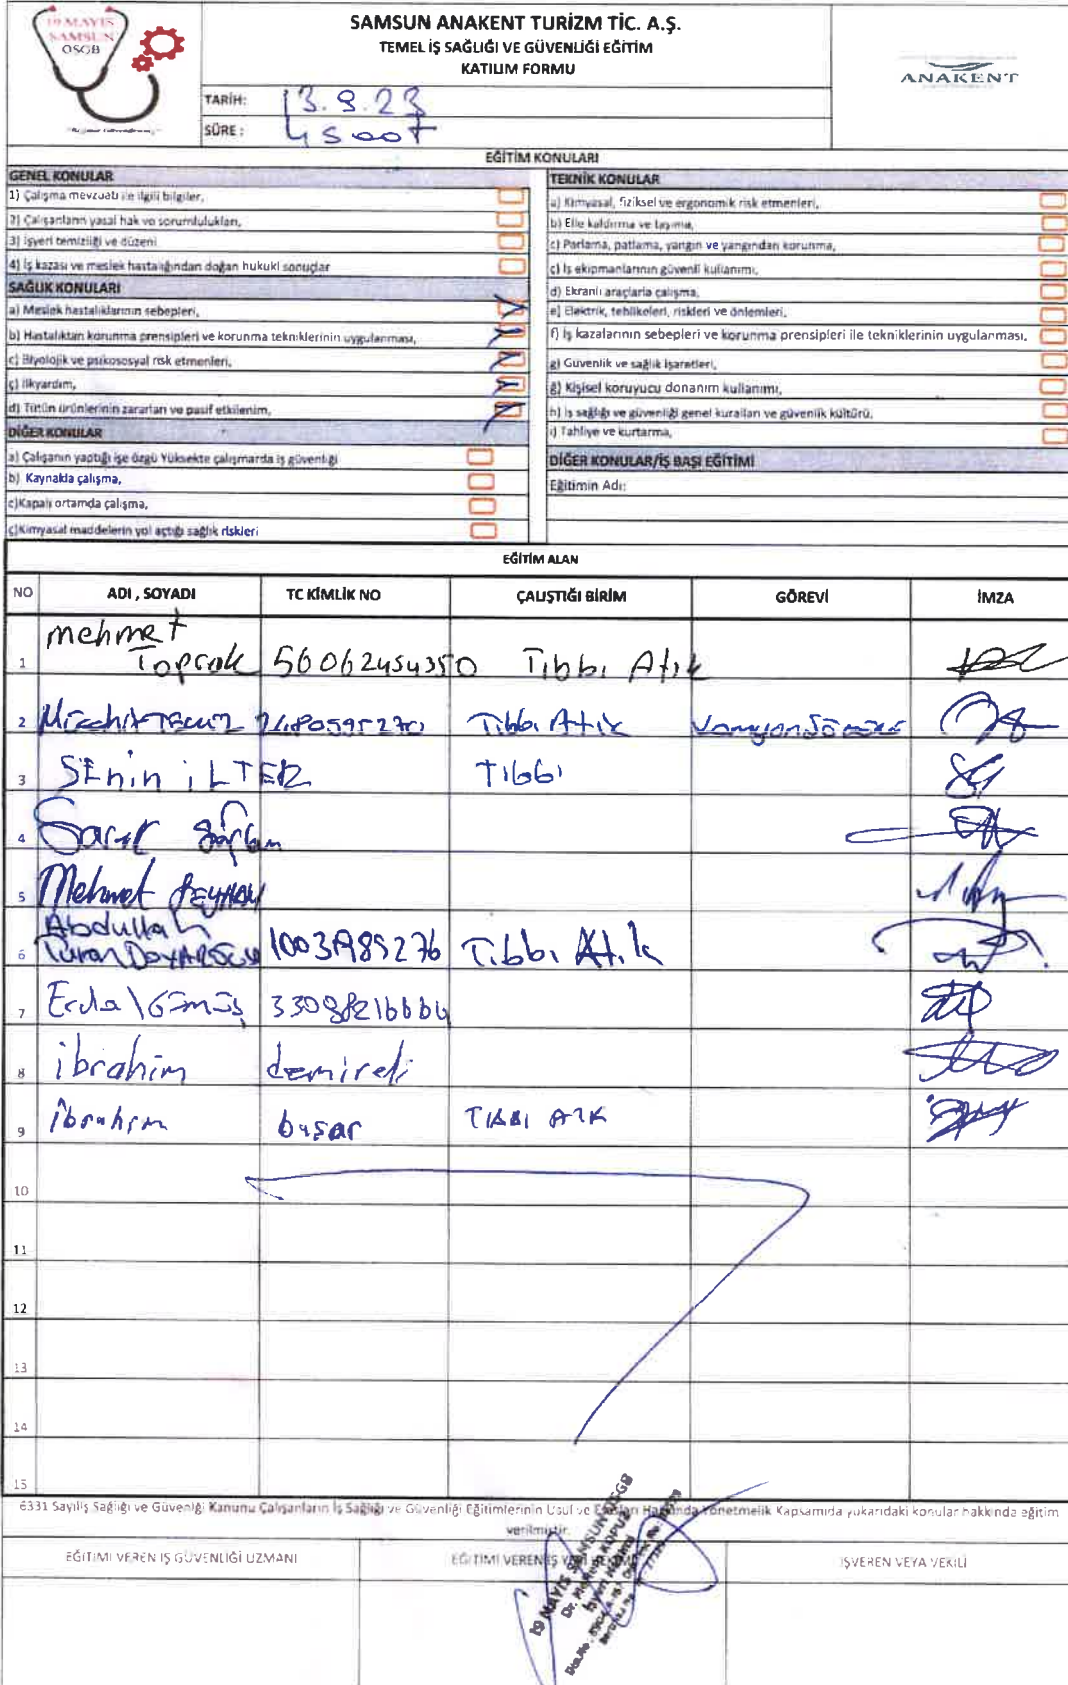 19 MAYIS
SAMSUN
OSGB
SAMSUN ANAKENT TURİZM TİC. A.Ş.
TEMEL İŞ SAĞLIĞI VE GÜVENLİĞİ EĞİTİM
KATILIM FORMU
ANAKENT
TARİH: 13.9.23
SÜRE : 4 saat
EĞİTİM KONULARI
GENEL KONULAR
1) Çalışma mevzuatı ile ilgili bilgiler,
2) Çalışanların yasal hak ve sorumlulukları,
3) İşyeri temizliği ve düzeni
4) İş kazası ve meslek hastalığından doğan hukuki sonuçlar
SAĞLIK KONULARI
a) Meslek hastalıklarının sebepleri,
b) Hastalıktan korunma prensipleri ve korunma tekniklerinin uygulanması,
c) Biyolojik ve psikososyal risk etmenleri,
ç) İlkyardım,
d) Tütün ürünlerinin zararları ve pasif etkilenim,
DİĞER KONULAR
a) Çalışanın yaptığı işe özgü Yüksekte çalışmarda iş güvenliği
b) Kaynakla çalışma,
c)Kapalı ortamda çalışma,
ç)Kimyasal maddelerin yol açtığı sağlık riskleri
TEKNİK KONULAR
a) Kimyasal, fiziksel ve ergonomik risk etmenleri,
b) Elle kaldırma ve taşıma,
c) Parlama, patlama, yangın ve yangından korunma,
ç) İş ekipmanlarının güvenli kullanımı,
d) Ekranlı araçlarla çalışma,
e) Elektrik, tehlikeleri, riskleri ve önlemleri,
f) İş kazalarının sebepleri ve korunma prensipleri ile tekniklerinin uygulanması,
g) Güvenlik ve sağlık işaretleri,
ğ) Kişisel koruyucu donanım kullanımı,
h) İş sağlığı ve güvenliği genel kuralları ve güvenlik kültürü,
ı) Tahliye ve kurtarma,
DİĞER KONULAR/İŞ BAŞI EĞİTİMİ
Eğitimin Adı:
EĞİTİM ALAN
NO ADI , SOYADI TC KİMLİK NO ÇALIŞTIĞI BİRİM GÖREVİ İMZA
1 mehmet
Toprak 56062454350 Tıbbı Atık
2 Tıbbı Atık
3 SEnin iLTER Tıbbı
4
5 Mehmet
6 Abdullah
Turan Tıbbı Atık
7 Erdal Gümüş
8 ibrahim demireli
9 ibrahim başar TIBBI ATK
10
11
12
13
14
15
6331 Sayılı İş Sağlığı ve Güvenliği Kanunu Çalışanların İş Sağlığı ve Güvenliği Eğitimlerinin Usul ve Esasları Hakkında Yönetmelik Kapsamıda yukarıdaki konular hakkında eğitim
verilmiştir.
EĞİTİMİ VEREN İŞ GÜVENLİĞİ UZMANI
EĞİTİMİ VEREN İŞ
İŞVEREN VEYA VEKİLİ
19 MAYIS SAMSUN OSGB